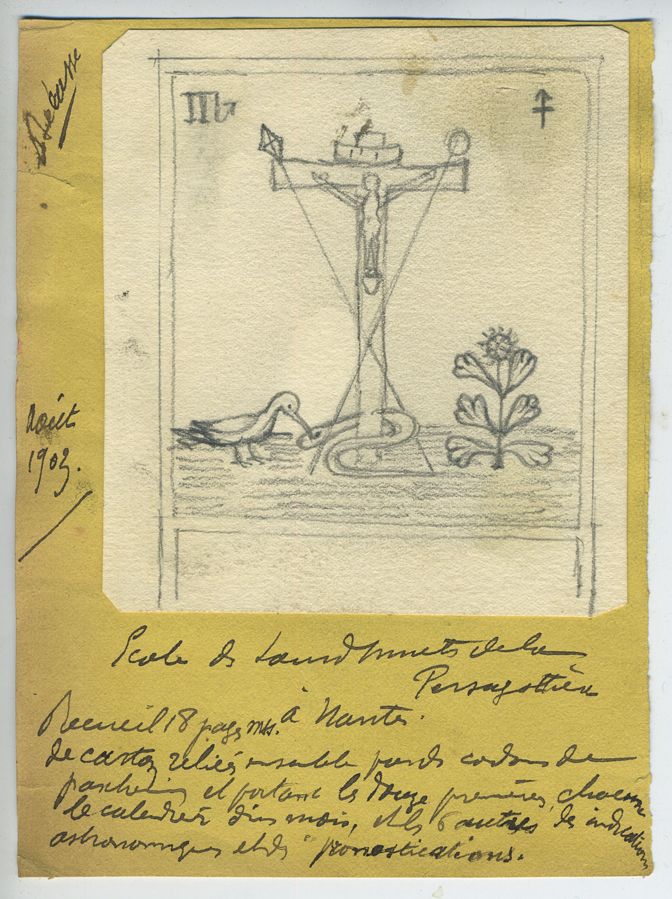 Août
1903.
Ecole de Sourds Muets de la
Persagottière
à Nantes.
Recueil 18 pages mss.
de carton reliés ensemble par des cordons de
parchemin et portant les douze premières, chacune
le calendrier d'un mois, et les 6 autres des indications
astronomiques et des "pronostications.